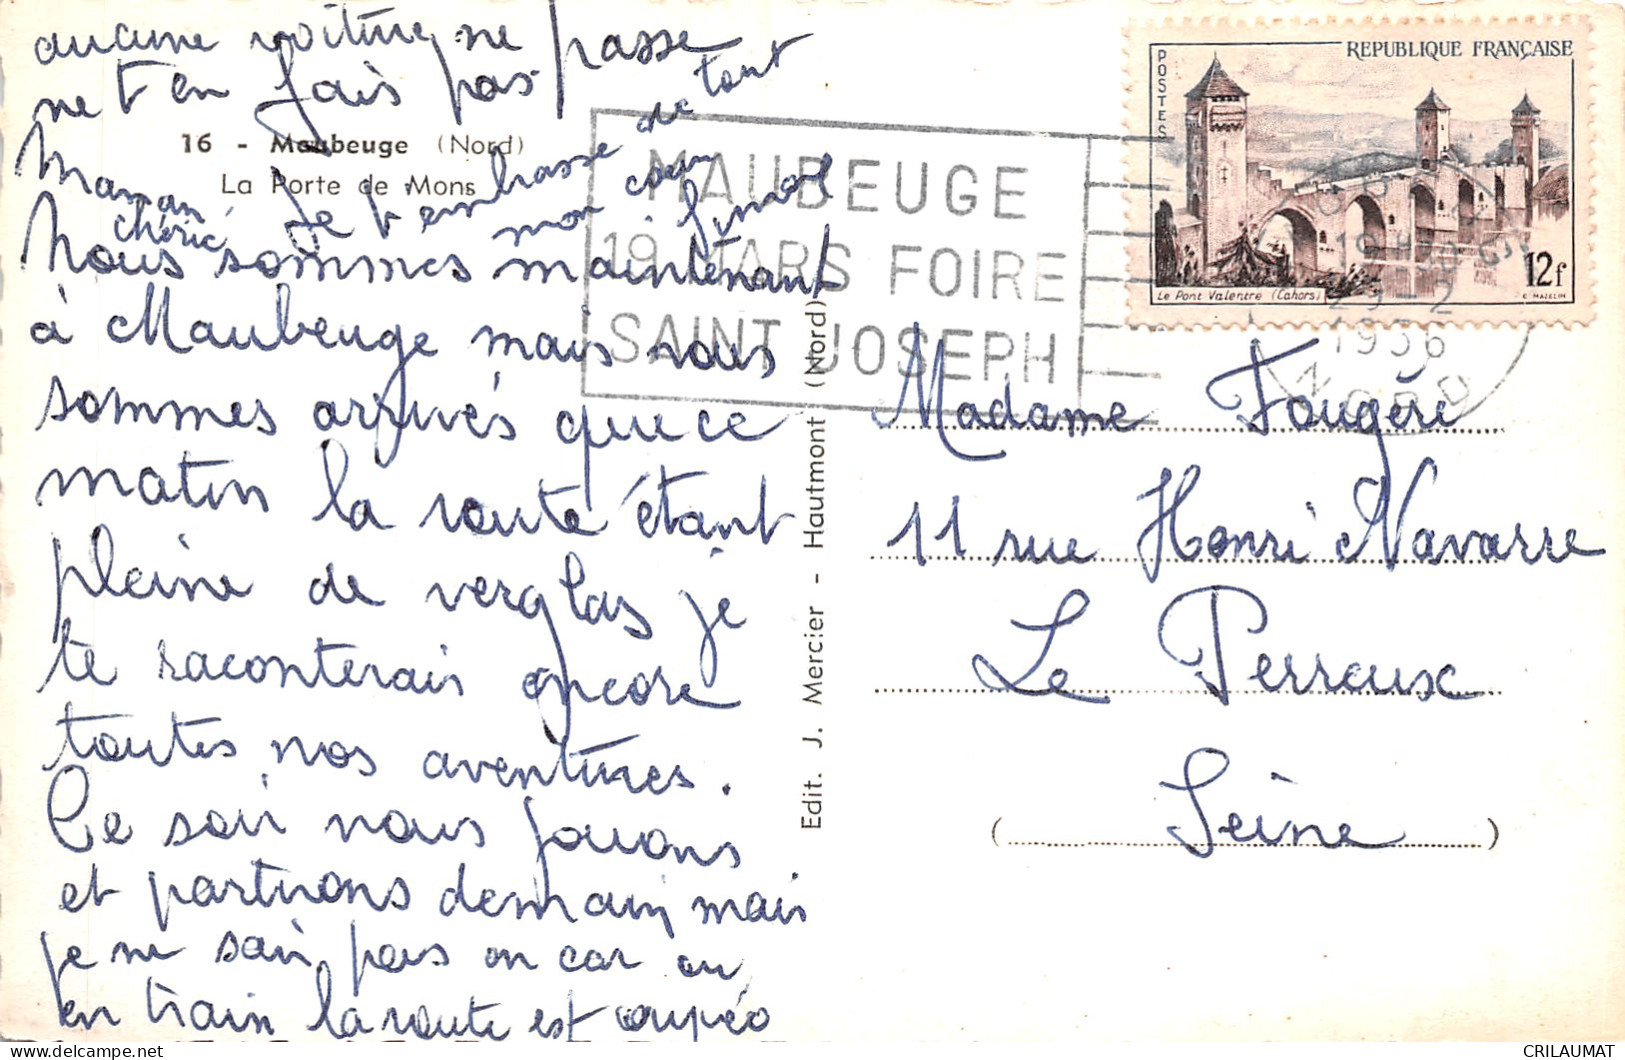 aucune voiture ne passe
ne t en fais pas
16 - Maubeuge (Nord)
La Porte de Mons
Maman chérie Je t embrasse de tout
mon cœur
Nous sommes maintenant
à Maubeuge mais nous
sommes arrivés que ce
matin la route étant
pleine de verglas je
te raconterais encore
toutes nos aventures.
Ce soir nous jouons
et partirons demain mais
je ne sais pas en car ou
en train la route est coupée
Edit. J. Mercier - Hautmont (Nord)
MAUBEUGE
19 MARS FOIRE
SAINT JOSEPH
POSTES
REPUBLIQUE FRANÇAISE
Le Pont Valentre (Cahors)
12f
C. MAZELIN
29-2
1956
NORD
Madame Fougère
11 rue Henri Navarre
Le Perreux
(Seine)
CRILAUMAT